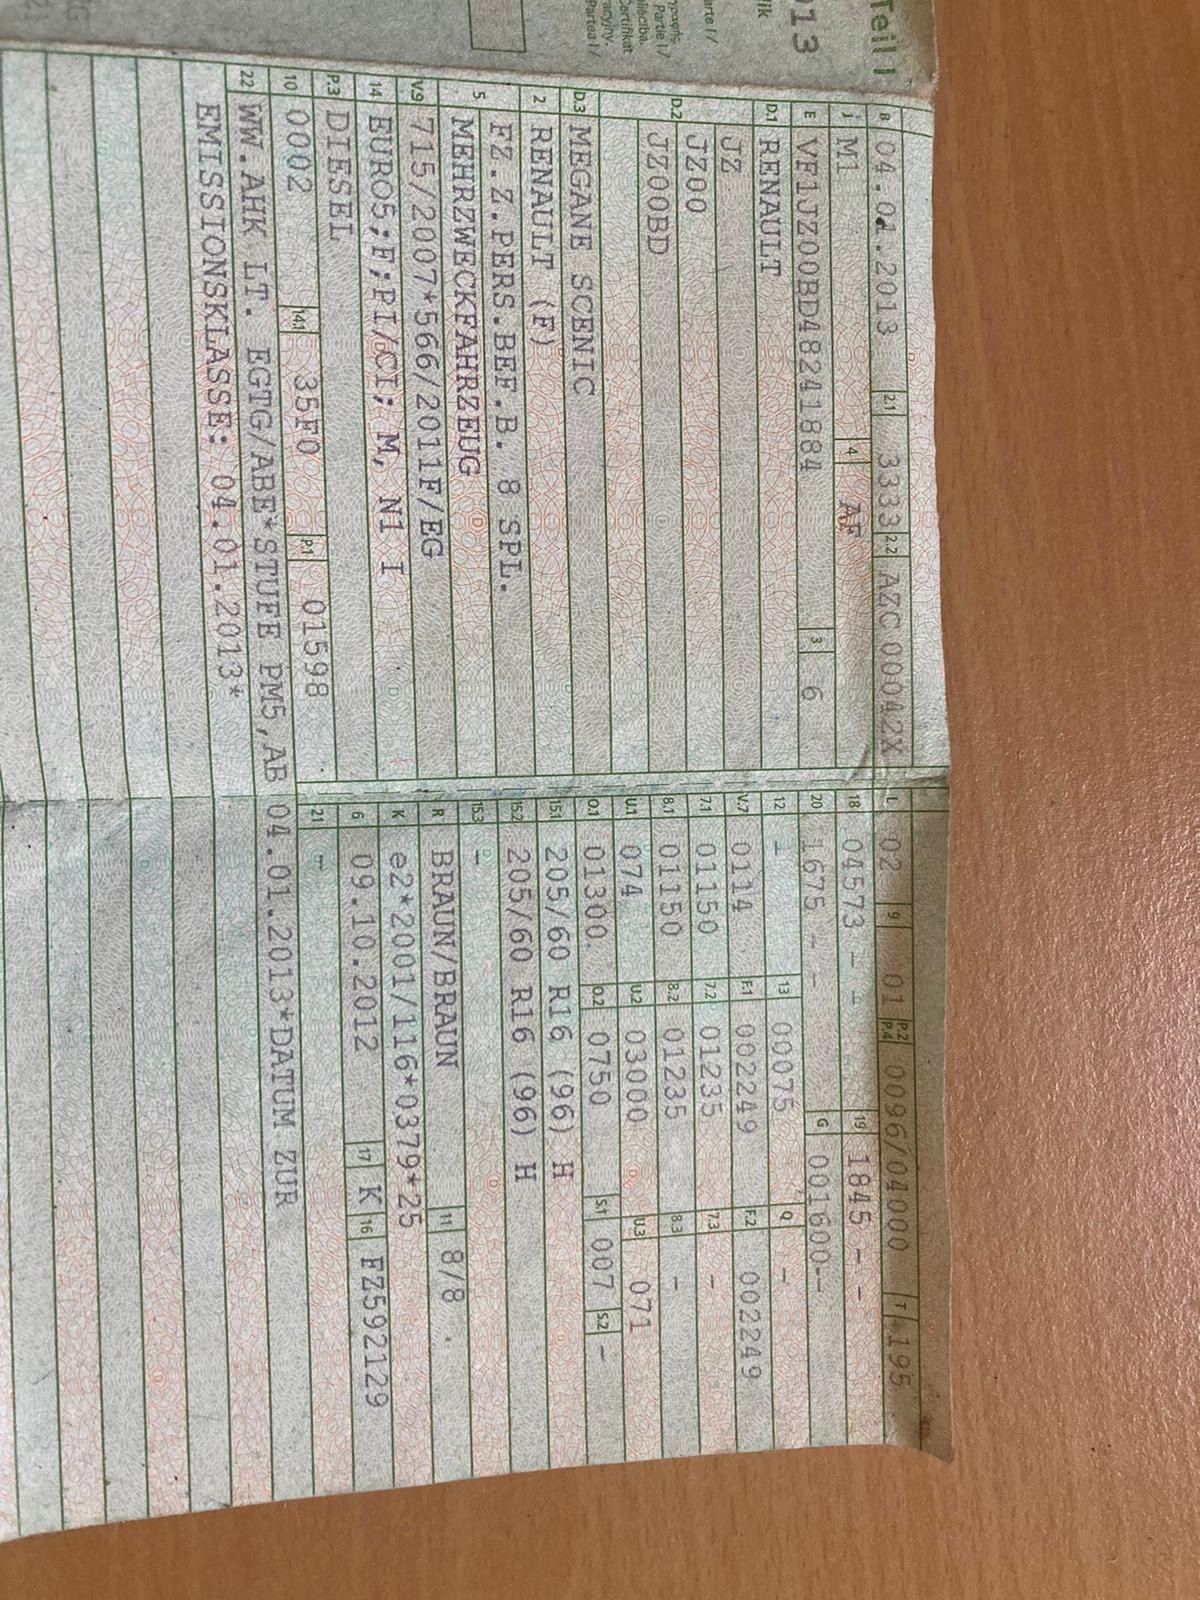 Teil I
013
lik
arte I /
Partie I /
Certifikat
racyjny.
Partea I /
B 04.01.2013 2.1 3333 2.2 AZC00042X
J M1 4 AF
E VF1JZ00BD48241884 3 6
D.1 RENAULT
JZ
D.2 JZ00
JZ00BD
D.3 MEGANE SCENIC
2 RENAULT (F)
5 FZ.Z.PERS.BEF.B. 8 SPL.
MEHRZWECKFAHRZEUG
V.9 715/2007*566/2011F/EG
14 EURO5;F;PI/CI; M, N1 I
P.3 DIESEL
10 0002 14.1 35F0 P.1 01598
L 02 9 01 P.2 P.4 0096/04000 T 195
18 04573 - - 19 1845 - -
20 1675 - - G 001600--
12 - 13 00075 Q -
V.7 0114 F.1 002249 F.2 002249
7.1 01150 7.2 01235 7.3 -
8.1 01150 8.2 01235 8.3 -
U.1 074 U.2 03000 U.3 071
O.1 01300 O.2 0750 S.1 007 S.2 -
15.1 205/60 R16 (96) H
15.2 205/60 R16 (96) H
15.3 -
R BRAUN/BRAUN 11 8/8
K e2*2001/116*0379*25
6 09.10.2012 17 K 16 FZ592129
21 -
22 WW.AHK LT. EGTG/ABE*STUFE PM5,AB 04.01.2013*DATUM ZUR
EMISSIONSKLASSE: 04.01.2013*